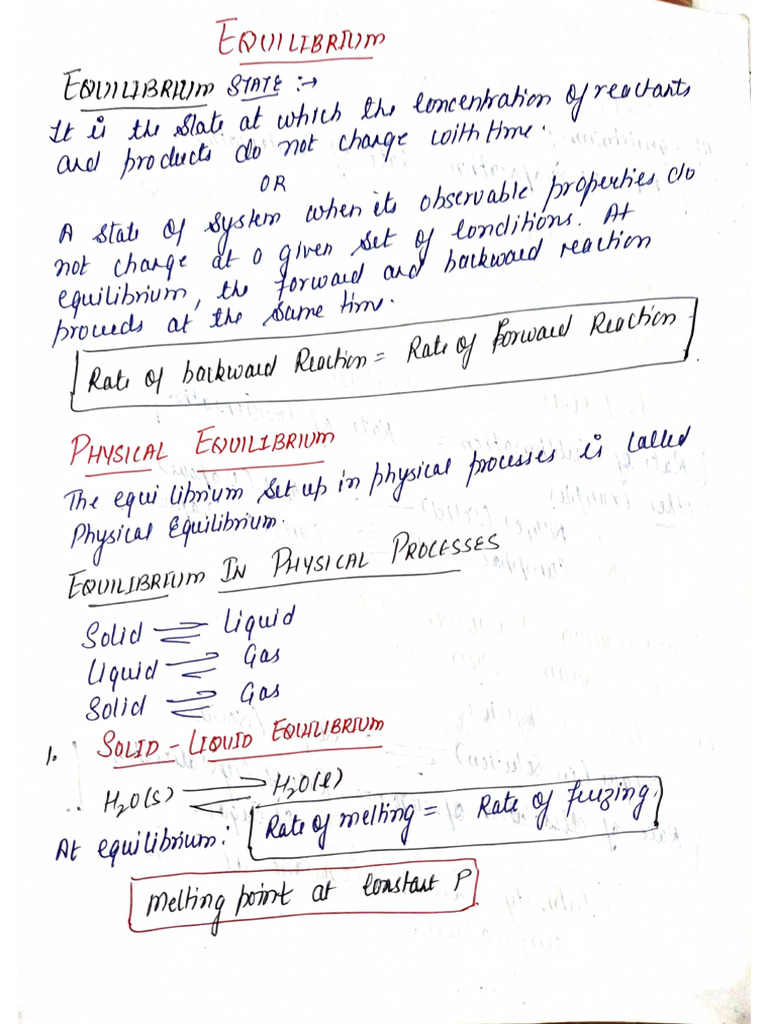 EQUILIBRIUM
EQUILIBRIUM STATE :→
It is the state at which the concentration of reactants
and products do not change with time.
OR
A state of system when its observable properties do
not change at a given set of conditions. At
equilibrium, the forward and backward reaction
proceeds at the same time.
Rate of backward Reaction = Rate of forward Reaction.
PHYSICAL EQUILIBRIUM
The equilibrium set up in physical processes is called
Physical Equilibrium.
EQUILIBRIUM IN PHYSICAL PROCESSES
Solid ⇌ Liquid
Liquid ⇌ Gas
Solid ⇌ Gas
1. SOLID - LIQUID EQUILIBRIUM
H2O(s) ⇌ H2O(l)
At equilibrium: Rate of melting = Rate of freezing.
Melting point at constant P